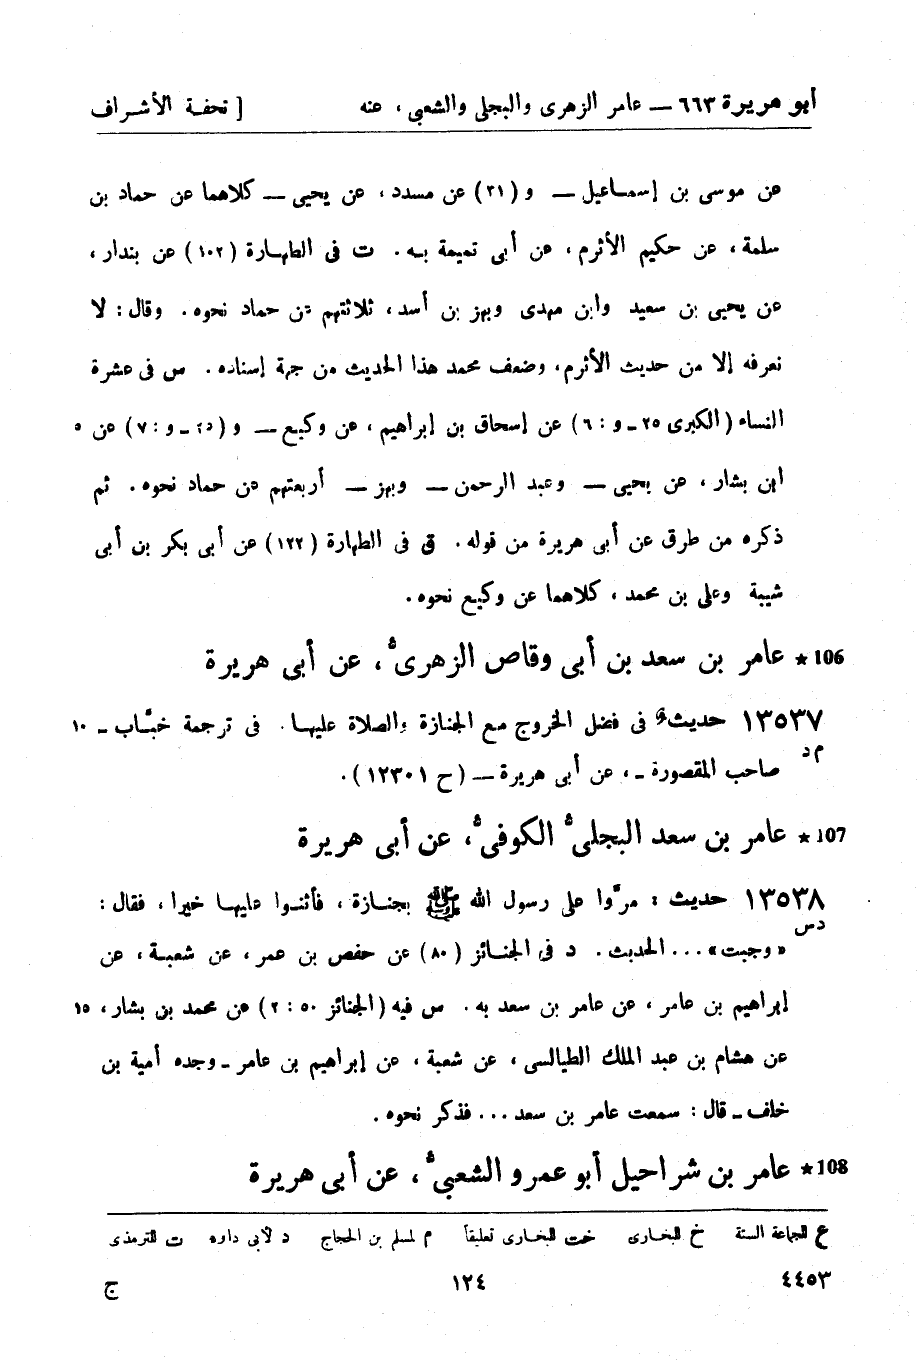 أبو هريرة ٦٦٣ — عامر الزهرى والبجلى والشعبى ، عنه [ تحفة الأشراف
عن موسى بن إسماعيل — و (٢١) عن مسدد ، عن يحيى — كلاهما عن حماد بن
سلمة ، عن حكيم الأثرم ، عن أبى تميمة به . ت فى الطهارة (١٠٢) عن بندار ،
عن يحيى بن سعيد وابن مهدى وبهز بن أسد ، ثلاثتهم عن حماد نحوه . وقال : لا
نعرفه إلا من حديث الأثرم ، وضعف محمد هذا الحديث من جهة إسناده . س فى عشرة
النساء (الكبرى ٢٥ ـ و : ٦) عن إسحاق بن إبراهيم ، عن وكيع — و ( ـ و : ٧) عن ٥
ابن بشار ، عن يحيى — وعبد الرحمن — وبهز — أربعتهم عن حماد نحوه . ثم
ذكره من طرق عن أبى هريرة من قوله . ق فى الطهارة (١٢٢) عن أبى بكر بن أبى
شيبة وعلى بن محمد ، كلاهما عن وكيع نحوه .
106 * عامر بن سعد بن أبى وقاص الزهرى ، عن أبى هريرة
١٣٥٣٧ حديث فى فضل الخروج مع الجنازة والصلاة عليها . فى ترجمة خبَّاب ـ ١٠
م د
صاحب المقصورة ـ ، عن أبى هريرة — (ح ١٢٣٠١) .
107 * عامر بن سعد البجلى الكوفى ، عن أبى هريرة
١٣٥٣٨ حديث : مرّوا على رسول الله ﷺ بجنازة ، فأثنوا عليها خيرا ، فقال :
د س
« وجبت » ... الحديث . د فى الجنائز (٨٠) عن حفص بن عمر ، عن شعبة ، عن
إبراهيم بن عامر ، عن عامر بن سعد به . س فيه (الجنائز ٥٠ : ٢) عن محمد بن بشار ، ١٥
عن هشام بن عبد الملك الطيالسى ، عن شعبة ، عن إبراهيم بن عامر ـ وجده أمية بن
خلف ـ قال : سمعت عامر بن سعد ... فذكر نحوه .
108 * عامر بن شراحيل أبو عمرو الشعبى ، عن أبى هريرة
ع للجماعة الستة خ للبخارى خت للبخارى تعليقاً م لمسلم بن الحجاج د لأبى داود ت للترمذى
٤٤٥٣ ١٢٤ ج